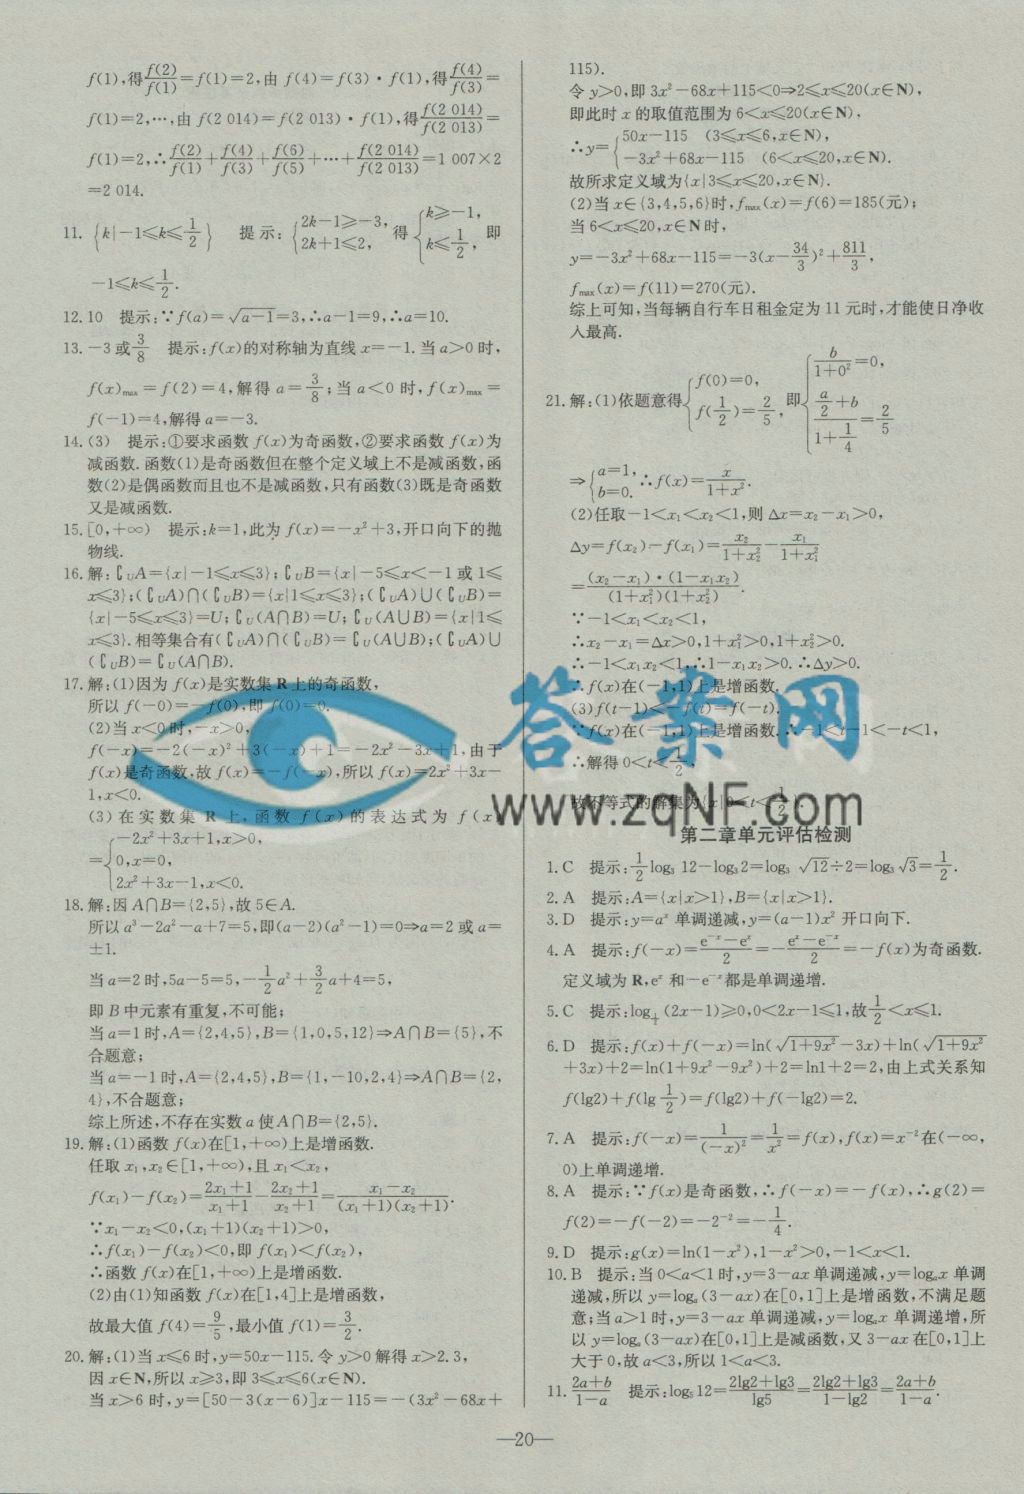 f(1),得f(2)/f(1)=f(1)=2,由 f(4)=f(3)·f(1),得f(4)/f(3)=
f(1)=2,…,由 f(2 014)=f(2 013)·f(1),得f(2 014)/f(2 013)=
f(1)=2,∴f(2)/f(1)+f(4)/f(3)+f(6)/f(5)+…+f(2 014)/f(2 013)=1 007×2
=2 014.
11. {k|-1≤k≤1/2} 提示:{2k-1≥-3, 2k+1≤2, 得{k≥-1, k≤1/2, 即
-1≤k≤1/2.
12. 10 提示:∵f(a)=√(a-1)=3,∴a-1=9,∴a=10.
13. -3或3/8 提示:f(x)的对称轴为直线 x=-1.当 a>0 时,
f(x)max=f(2)=4,解得 a=3/8;当 a<0 时,f(x)max=
f(-1)=4,解得 a=-3.
14. (3) 提示:①要求函数 f(x)为奇函数,②要求函数 f(x)为
减函数.函数(1)是奇函数但在整个定义域上不是减函数,函
数(2)是偶函数而且也不是减函数,只有函数(3)既是奇函数
又是减函数.
15. [0,+∞) 提示:k=1,此为 f(x)=-x²+3,开口向下的抛
物线.
16. 解:∁UA={x|-1≤x≤3};∁UB={x|-5≤x<-1 或 1≤
x≤3};(∁UA)∩(∁UB)={x|1≤x≤3};(∁UA)∪(∁UB)=
{x|-5≤x≤3}=U;∁U(A∩B)=U;∁U(A∪B)={x|1≤
x≤3}.相等集合有(∁UA)∩(∁UB)=∁U(A∪B);(∁UA)∪
(∁UB)=∁U(A∩B).
17. 解:(1)因为 f(x)是实数集 R 上的奇函数,
所以 f(-0)=-f(0),即 f(0)=0.
(2)当 x<0时,-x>0,
f(-x)=-2(-x)²+3(-x)+1=-2x²-3x+1,由于
f(x)是奇函数,故 f(x)=-f(-x),所以 f(x)=2x²+3x-
1,x<0.
(3)在实数集 R 上,函数 f(x)的表达式为 f(x)
={-2x²+3x+1,x>0,
0,x=0,
2x²+3x-1,x<0.
18. 解:因 A∩B={2,5},故 5∈A.
所以 a³-2a²-a+7=5,即(a-2)(a²-1)=0⇒a=2 或 a=
±1.
当 a=2 时,5a-5=5,-1/2a²+3/2a+4=5,
即 B 中元素有重复,不可能;
当 a=1 时,A={2,4,5},B={1,0,5,12}⇒A∩B={5},不
合题意;
当 a=-1 时,A={2,4,5},B={1,-10,2,4}⇒A∩B={2,
4},不合题意;
综上所述,不存在实数 a 使 A∩B={2,5}.
19. 解:(1)函数 f(x)在[1,+∞)上是增函数.
任取 x₁,x₂∈[1,+∞),且 x₁<x₂,
f(x₁)-f(x₂)=(2x₁+1)/(x₁+1)-(2x₂+1)/(x₂+1)=(x₁-x₂)/((x₁+1)(x₂+1)).
∵x₁-x₂<0,(x₁+1)(x₂+1)>0,
∴f(x₁)-f(x₂)<0,即 f(x₁)<f(x₂),
∴函数 f(x)在[1,+∞)上是增函数.
(2)由(1)知函数 f(x)在[1,4]上是增函数,
故最大值 f(4)=9/5,最小值 f(1)=3/2.
20. 解:(1)当 x≤6 时,y=50x-115.令 y>0 解得 x>2.3,
因 x∈N,所以 x≥3,即 3≤x≤6(x∈N).
当 x>6 时,y=[50-3(x-6)]x-115=-(3x²-68x+
115).
令 y>0,即 3x²-68x+115<0⇒2≤x≤20(x∈N),
即此时 x 的取值范围为 6<x≤20(x∈N),
∴y={50x-115 (3≤x≤6,x∈N),
-3x²+68x-115 (6<x≤20,x∈N).
故所求定义域为{x|3≤x≤20,x∈N}.
(2)当 x∈{3,4,5,6}时,fmax(x)=f(6)=185(元);
当 6<x≤20,x∈N 时,
y=-3x²+68x-115=-3(x-34/3)²+811/3,
fmax(x)=f(11)=270(元).
综上可知,当每辆自行车日租金定为 11 元时,才能使日净收
入最高.
21. 解:(1)依题意得{f(0)=0, f(1/2)=2/5, 即{b/(1+0²)=0, (a/2+b)/(1+1/4)=2/5
⇒{a=1, b=0. ∴f(x)=x/(1+x²).
(2)任取-1<x₁<x₂<1,则 Δx=x₂-x₁>0,
Δy=f(x₂)-f(x₁)=x₂/(1+x₂²)-x₁/(1+x₁²)
=(x₂-x₁)·(1-x₁x₂)/((1+x₁²)(1+x₂²)).
∵-1<x₁<x₂<1,
∴x₂-x₁=Δx>0,1+x₁²>0,1+x₂²>0.
∴-1<x₁x₂<1,∴1-x₁x₂>0.∴Δy>0.
∴f(x)在(-1,1)上是增函数.
(3)f(t-1)<-f(t)=f(-t).
∵f(x)在(-1,1)上是增函数,∴-1<t-1<-t<1,
∴解得 0<t<1/2,
故不等式的解集为{x|0<t<1/2}.
答案网
www.zqNF.com
第二章单元评估检测
1. C 提示:1/2log₃ 12-log₃ 2=log₃ √12÷2=log₃ √3=1/2.
2. A 提示:A={x|x>1},B={x|x>1}.
3. D 提示:y=aˣ 单调递减,y=(a-1)x² 开口向下.
4. A 提示:f(-x)=(e⁻ˣ-eˣ)/2=-(eˣ-e⁻ˣ)/2=-f(x)为奇函数.
定义域为 R,eˣ 和-e⁻ˣ都是单调递增.
5. C 提示:log (2x-1)≥0,0<2x-1≤1,故1/2<x≤1.
6. D 提示:f(x)+f(-x)=ln(√(1+9x²)-3x)+ln(√(1+9x²)
+3x)+2=ln(1+9x²-9x²)+2=ln1+2=2,由上式关系知
f(lg2)+f(lg 1/2)=f(lg2)+f(-lg2)=2.
7. A 提示:f(-x)=1/(-x)²=1/x²=f(x),f(x)=x⁻²在(-∞,
0)上单调递增.
8. A 提示:∵f(x)是奇函数,∴f(-x)=-f(x),∴g(2)=
f(2)=-f(-2)=-2⁻²=-1/4.
9. D 提示:g(x)=ln(1-x²),1-x²>0,-1<x<1.
10. B 提示:当 0<a<1 时,y=3-ax 单调递减,y=logₐx 单调
递减,所以 y=logₐ(3-ax)在[0,1]上是增函数,不满足题
意;当 a>1 时,y=3-ax 单调递减,y=logₐx 单调递增,所
以 y=logₐ(3-ax)在[0,1]上是减函数,又 3-ax 在[0,1]上
大于 0,故 a<3,所以 1<a<3.
11. (2a+b)/(1-a) 提示:log₅12=(2lg2+lg3)/lg5=(2lg2+lg3)/(1-lg2)=(2a+b)/(1-a).
—20—